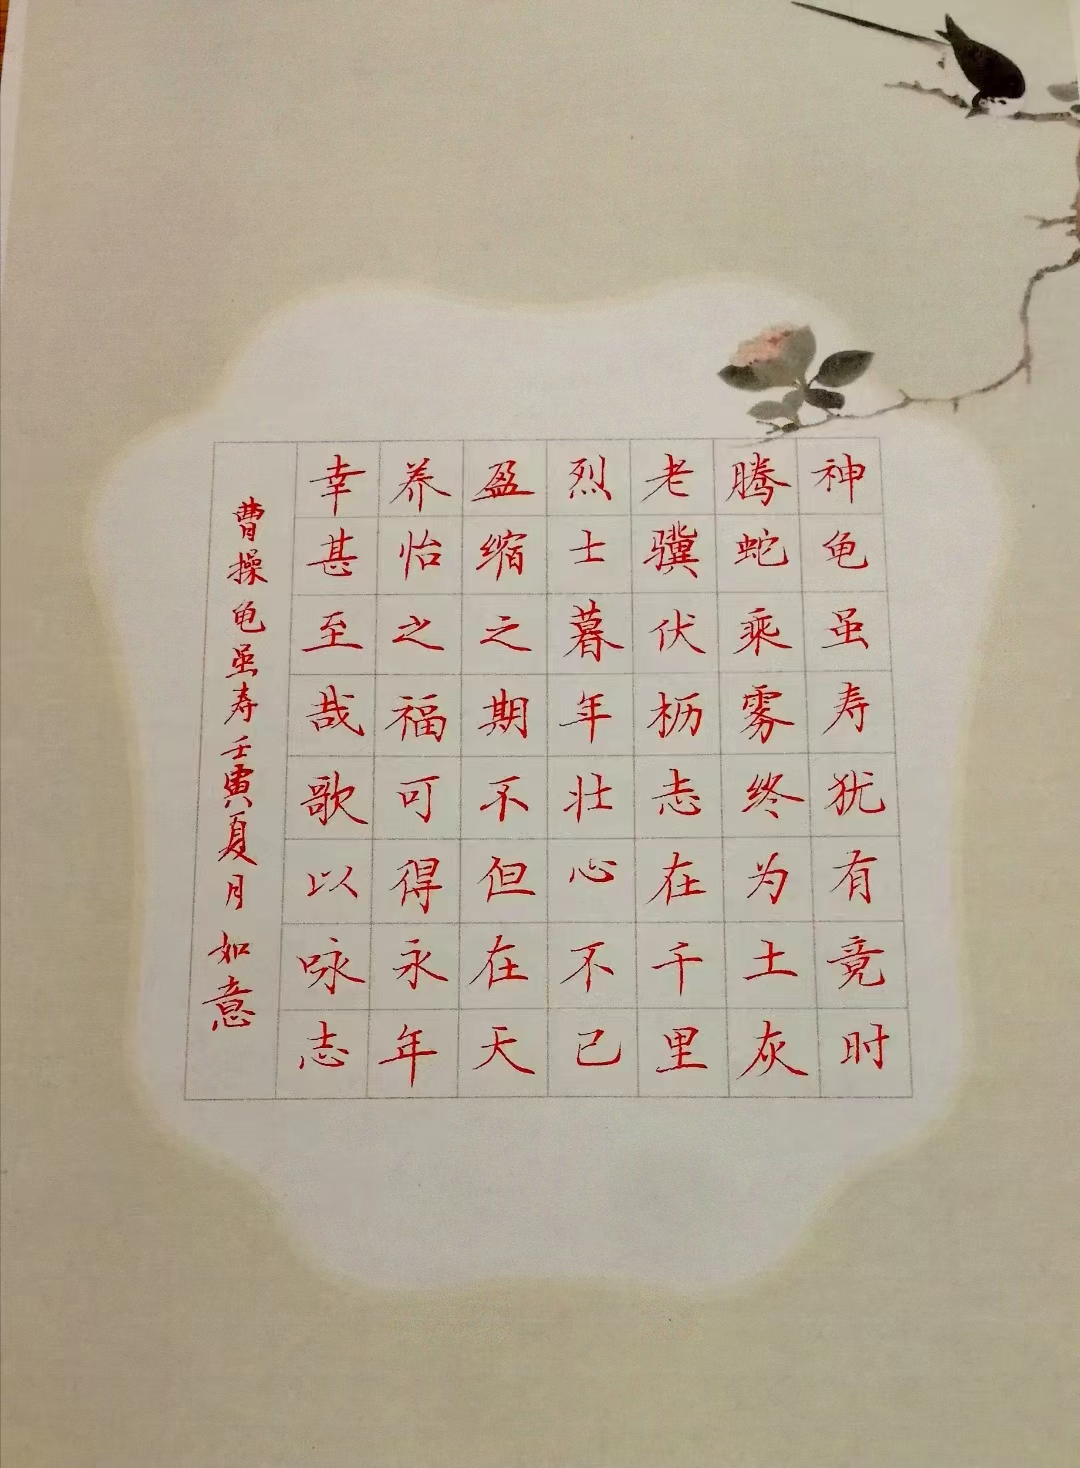 神龟虽寿犹有竟时
腾蛇乘雾终为土灰
老骥伏枥志在千里
烈士暮年壮心不已
盈缩之期不但在天
养怡之福可得永年
幸甚至哉歌以咏志
曹操龟虽寿壬寅夏月如意